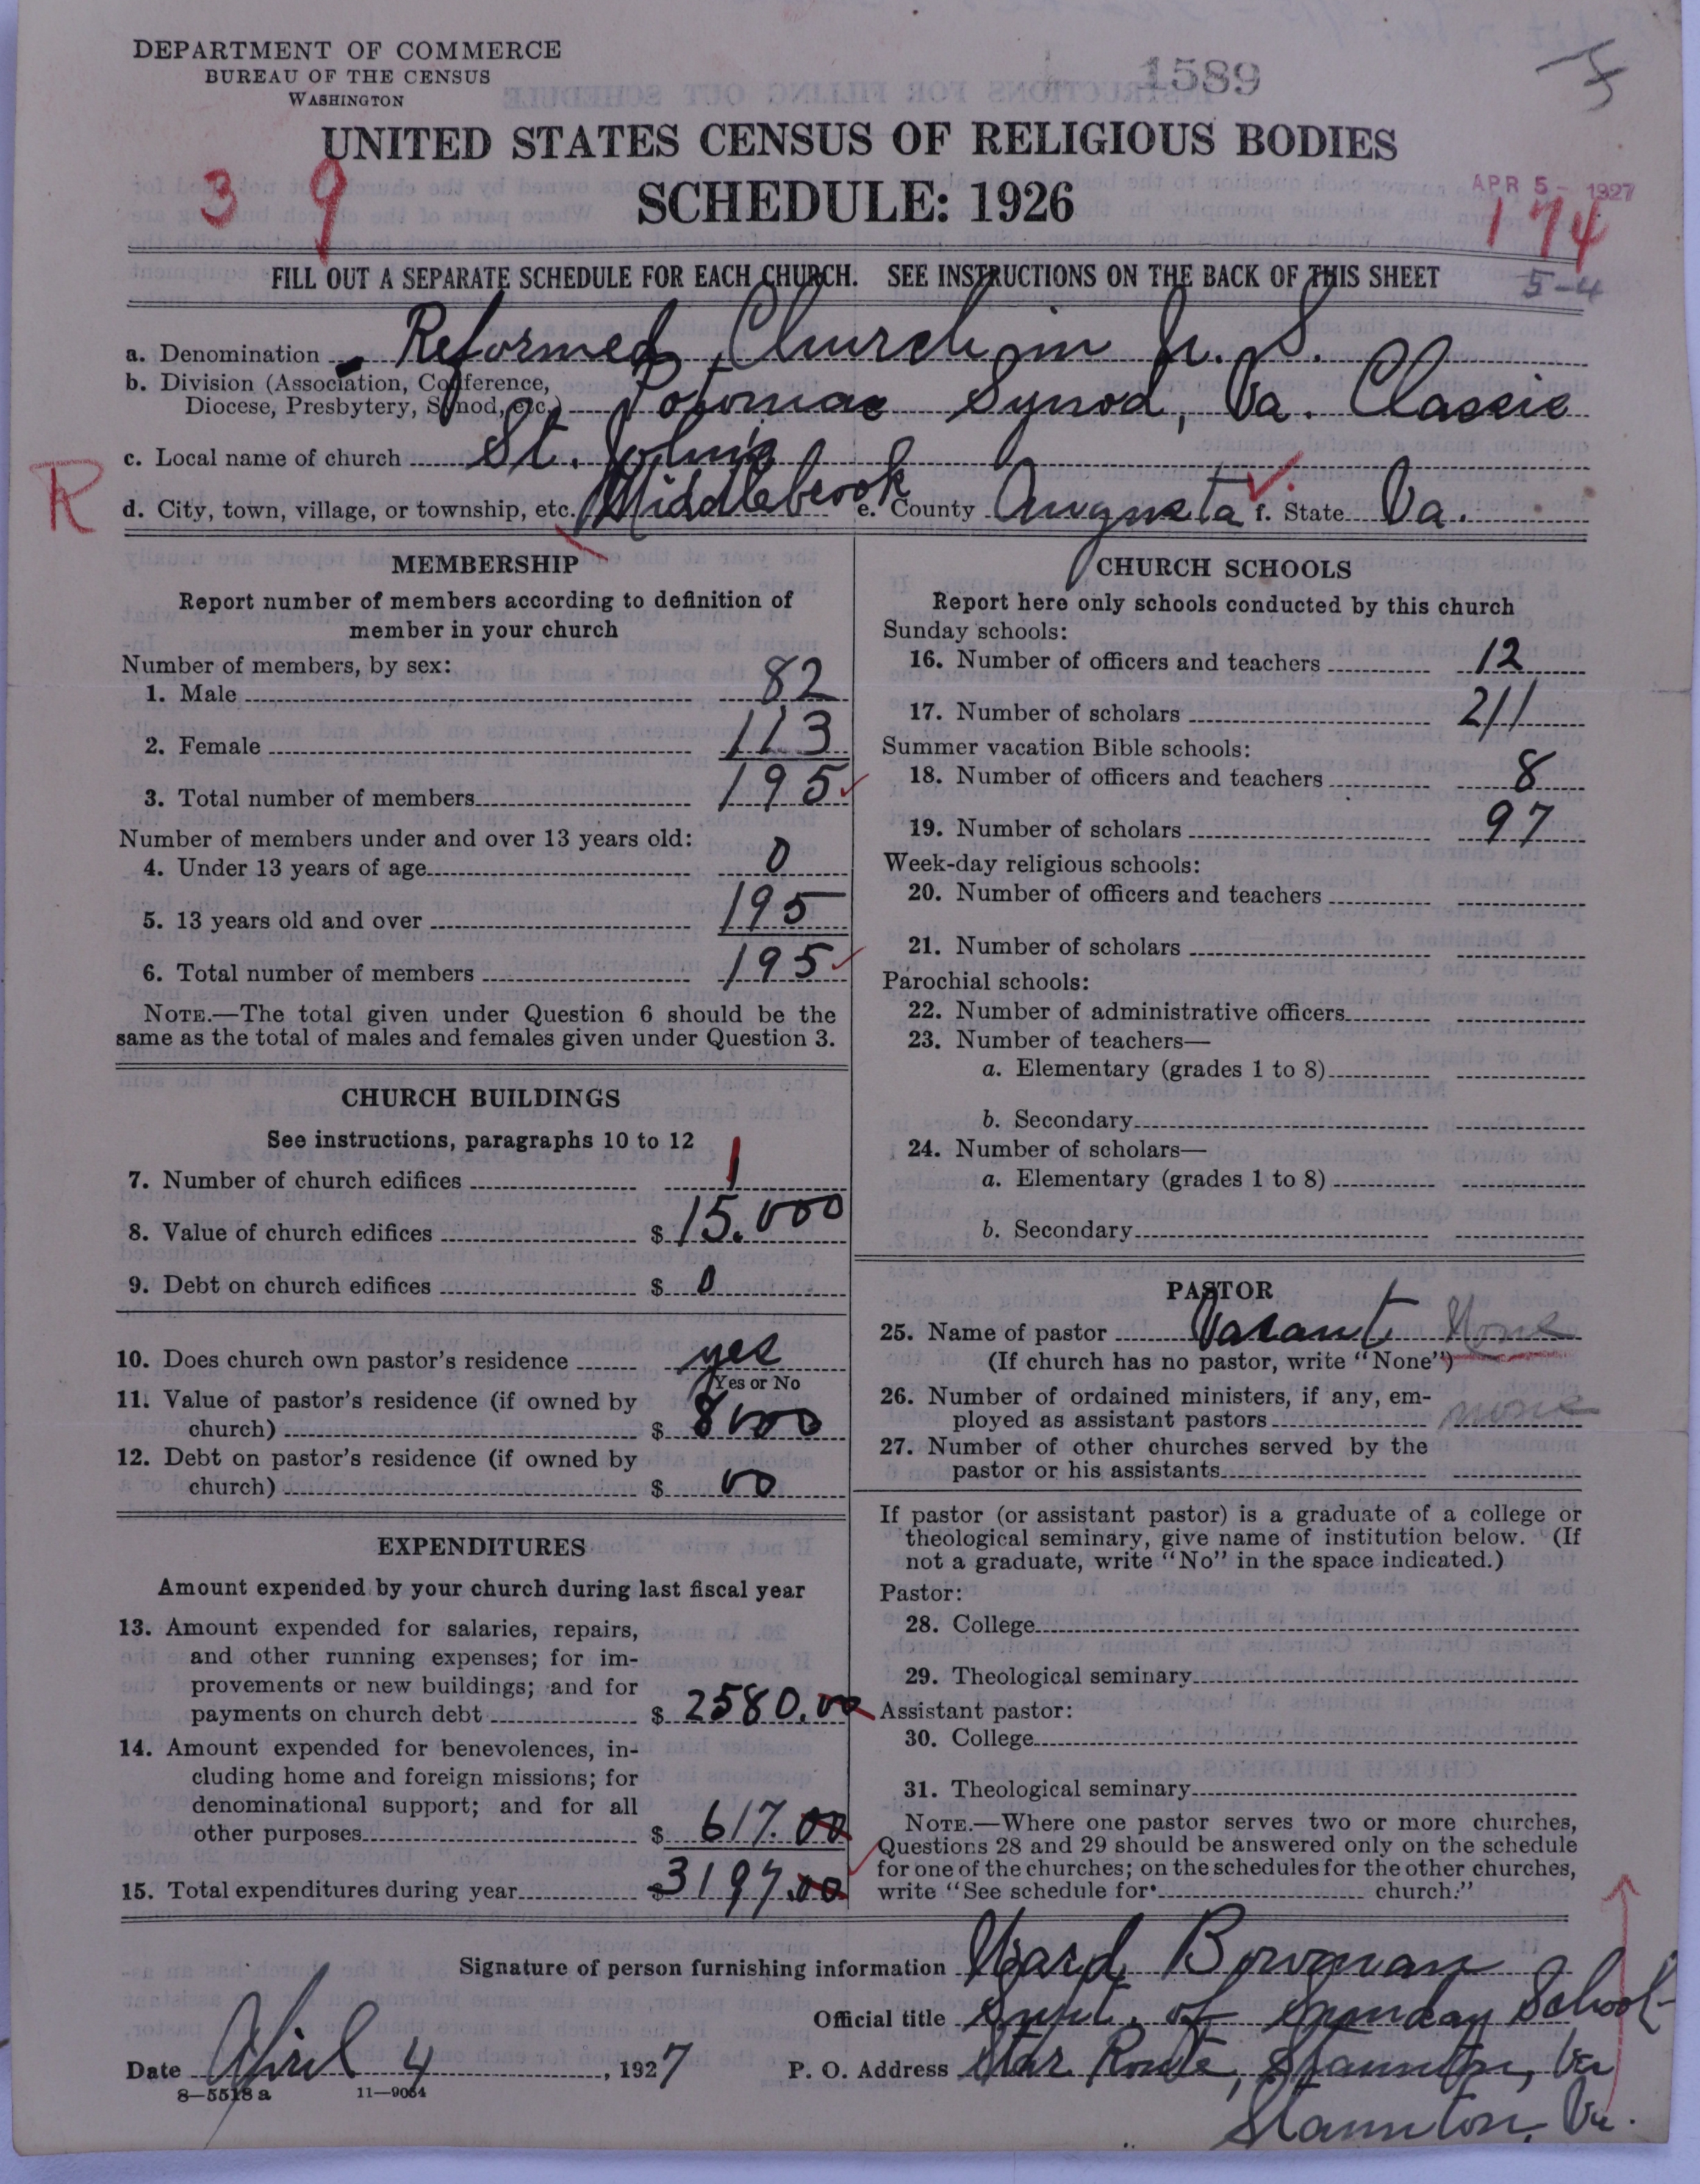 DEPARTMENT OF COMMERCE
BUREAU OF THE CENSUS
WASHINGTON
1589
UNITED STATES CENSUS OF RELIGIOUS BODIES
SCHEDULE: 1926
3 9
APR 5 - 1927
174
5-4
FILL OUT A SEPARATE SCHEDULE FOR EACH CHURCH. SEE INSTRUCTIONS ON THE BACK OF THIS SHEET
a. Denomination Reformed Church in U. S.
b. Division (Association, Conference,
Diocese, Presbytery, Synod, etc.) Potomac Synod, Va. Classis
c. Local name of church St. John's
R
d. City, town, village, or township, etc. Middlebrook e. County Augusta f. State Va.
MEMBERSHIP
Report number of members according to definition of
member in your church
Number of members, by sex:
1. Male 82
2. Female 113
3. Total number of members 195
Number of members under and over 13 years old:
4. Under 13 years of age 0
5. 13 years old and over 195
6. Total number of members 195
NOTE.—The total given under Question 6 should be the
same as the total of males and females given under Question 3.
CHURCH BUILDINGS
See instructions, paragraphs 10 to 12
7. Number of church edifices 1
8. Value of church edifices $ 15.000
9. Debt on church edifices $ 0
10. Does church own pastor's residence yes
Yes or No
11. Value of pastor's residence (if owned by
church) $ 8000
12. Debt on pastor's residence (if owned by
church) $ 00
EXPENDITURES
Amount expended by your church during last fiscal year
13. Amount expended for salaries, repairs,
and other running expenses; for im-
provements or new buildings; and for
payments on church debt $ 2580.00
14. Amount expended for benevolences, in-
cluding home and foreign missions; for
denominational support; and for all
other purposes $ 617.00
15. Total expenditures during year $ 3197.00
CHURCH SCHOOLS
Report here only schools conducted by this church
Sunday schools:
16. Number of officers and teachers 12
17. Number of scholars 211
Summer vacation Bible schools:
18. Number of officers and teachers 8
19. Number of scholars 97
Week-day religious schools:
20. Number of officers and teachers
21. Number of scholars
Parochial schools:
22. Number of administrative officers
23. Number of teachers—
a. Elementary (grades 1 to 8)
b. Secondary
24. Number of scholars—
a. Elementary (grades 1 to 8)
b. Secondary
PASTOR
25. Name of pastor Vacant None
(If church has no pastor, write "None")
26. Number of ordained ministers, if any, em-
ployed as assistant pastors none
27. Number of other churches served by the
pastor or his assistants
If pastor (or assistant pastor) is a graduate of a college or
theological seminary, give name of institution below. (If
not a graduate, write "No" in the space indicated.)
Pastor:
28. College
29. Theological seminary
Assistant pastor:
30. College
31. Theological seminary
NOTE.—Where one pastor serves two or more churches,
Questions 28 and 29 should be answered only on the schedule
for one of the churches; on the schedules for the other churches,
write "See schedule for church."
Signature of person furnishing information Ward Bowman
Official title Supt. of Sunday School
Date April 4, 1927 P. O. Address Star Route, Staunton, Va
8-5518 a 11-9064
Staunton, Va.